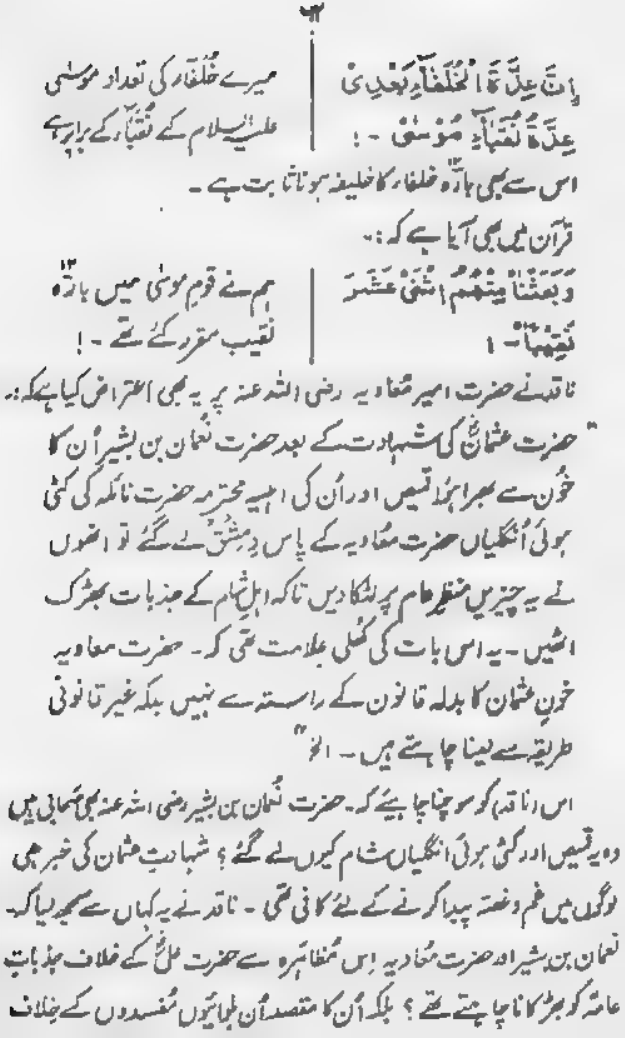 ۳
اِنَّ عِدَّۃَ الْخُلَفَآءِ بَعْدِیْ
عِدَّۃُ نُقَبَآءِ مُوْسٰی ۔ !
میرے خُلَفَاء کی تعداد موسٰی
علیہ السلام کے نُقَبَاء کے برابر ہے
اس سے بھی بارہ۱۲ خلفاء کا خلیفہ ہونا ثابت ہے ۔
قرآن میں بھی آیا ہے کہ :۔
وَبَعَثْنَا مِنْھُمُ اثْنَیْ عَشَرَ
نَقِیْبًا ۔ !
ہم نے قومِ موسٰی میں بارہ۱۲
نقیب مقرر کئے تھے ۔ !
ناقد نے حضرت امیر مُعاویہ رضی اللہ عنہ پر یہ بھی اعتراض کیا ہے کہ :۔
" حضرت عثمانؓ کی شہادت کے بعد حضرت نُعمان بن بشیر اُن کا
خُون سے بھرا ہُوا قمیص اور اُن کی اہلیہ محترمہ حضرت نائلہ کی کٹی
ہوئی اُنگلیاں حضرت مُعاویہ کے پاس دِمِشْقْ لے گئے تو انھوں
نے یہ چیزیں منظرِ عام پر لٹکا دیں تاکہ اہلِ شام کے جذبات بھڑک
اٹھیں ۔ یہ اس بات کی کُھلی علامت تھی کہ ۔ حضرت معاویہ
خونِ عثمان کا بدلہ قانون کے راستہ سے نہیں بلکہ غیر قانونی
طریقہ سے لینا چاہتے ہیں ۔ الخ "
اس (ناقد) کو سوچنا چاہیئے کہ ۔ حضرت نُعمان بن بشیر رضی اللہ عنہ بھی صحابی ہیں
وہ یہ قمیص اور کٹی ہوئی انگلیاں شام کیوں لے گئے ؟ شہادتِ عثمان کی خبر ہی
لوگوں میں غم و غصّہ پیدا کرنے کے لئے کافی تھی ۔ ناقد نے یہ کہاں سے سمجھ لیا کہ ۔
نعمان بن بشیر اور حضرت مُعاویہ اِس مُظاہرہ سے حضرت علیؓ کے خلاف جذباتِ
عامّہ کو بھڑکانا چاہتے تھے ؟ بلکہ اُن کا مقصد اُن بلوائیوں مُفسدوں کے خِلاف